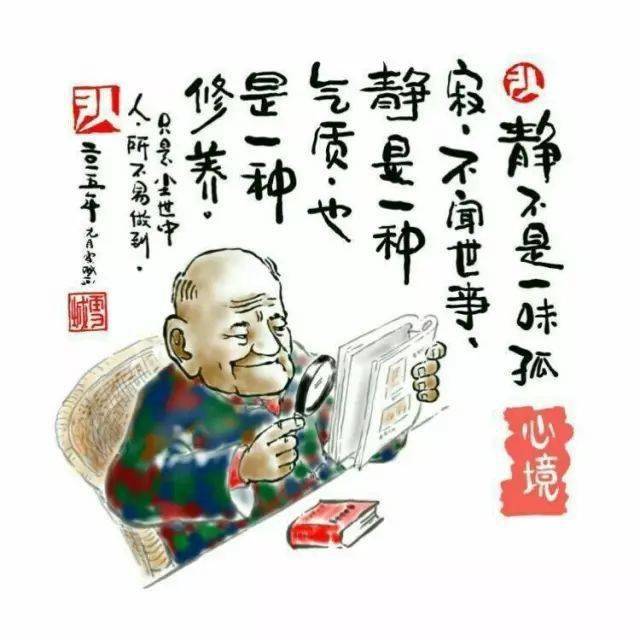 静不是一味孤
寂、不闻世事、
静是一种
气质·也
是一种
修养。
只是尘世中
人·所不易做到·
二〇一五年
心境